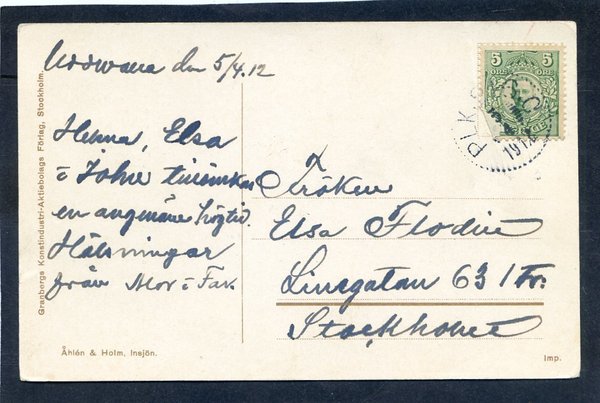 den 5/4.12
Helma, Elsa
John tillönskas
en angenäm högtid.
Hälsningar
från Mor o Far.
Fröken
Elsa Flodin
Linegatan 63 1 tr.
Stockholm
5 5
ÖRE ÖRE
1912
Granbergs Konstindustri-Aktiebolags Förlag, Stockholm.
Åhlén & Holm, Insjön.
Imp.